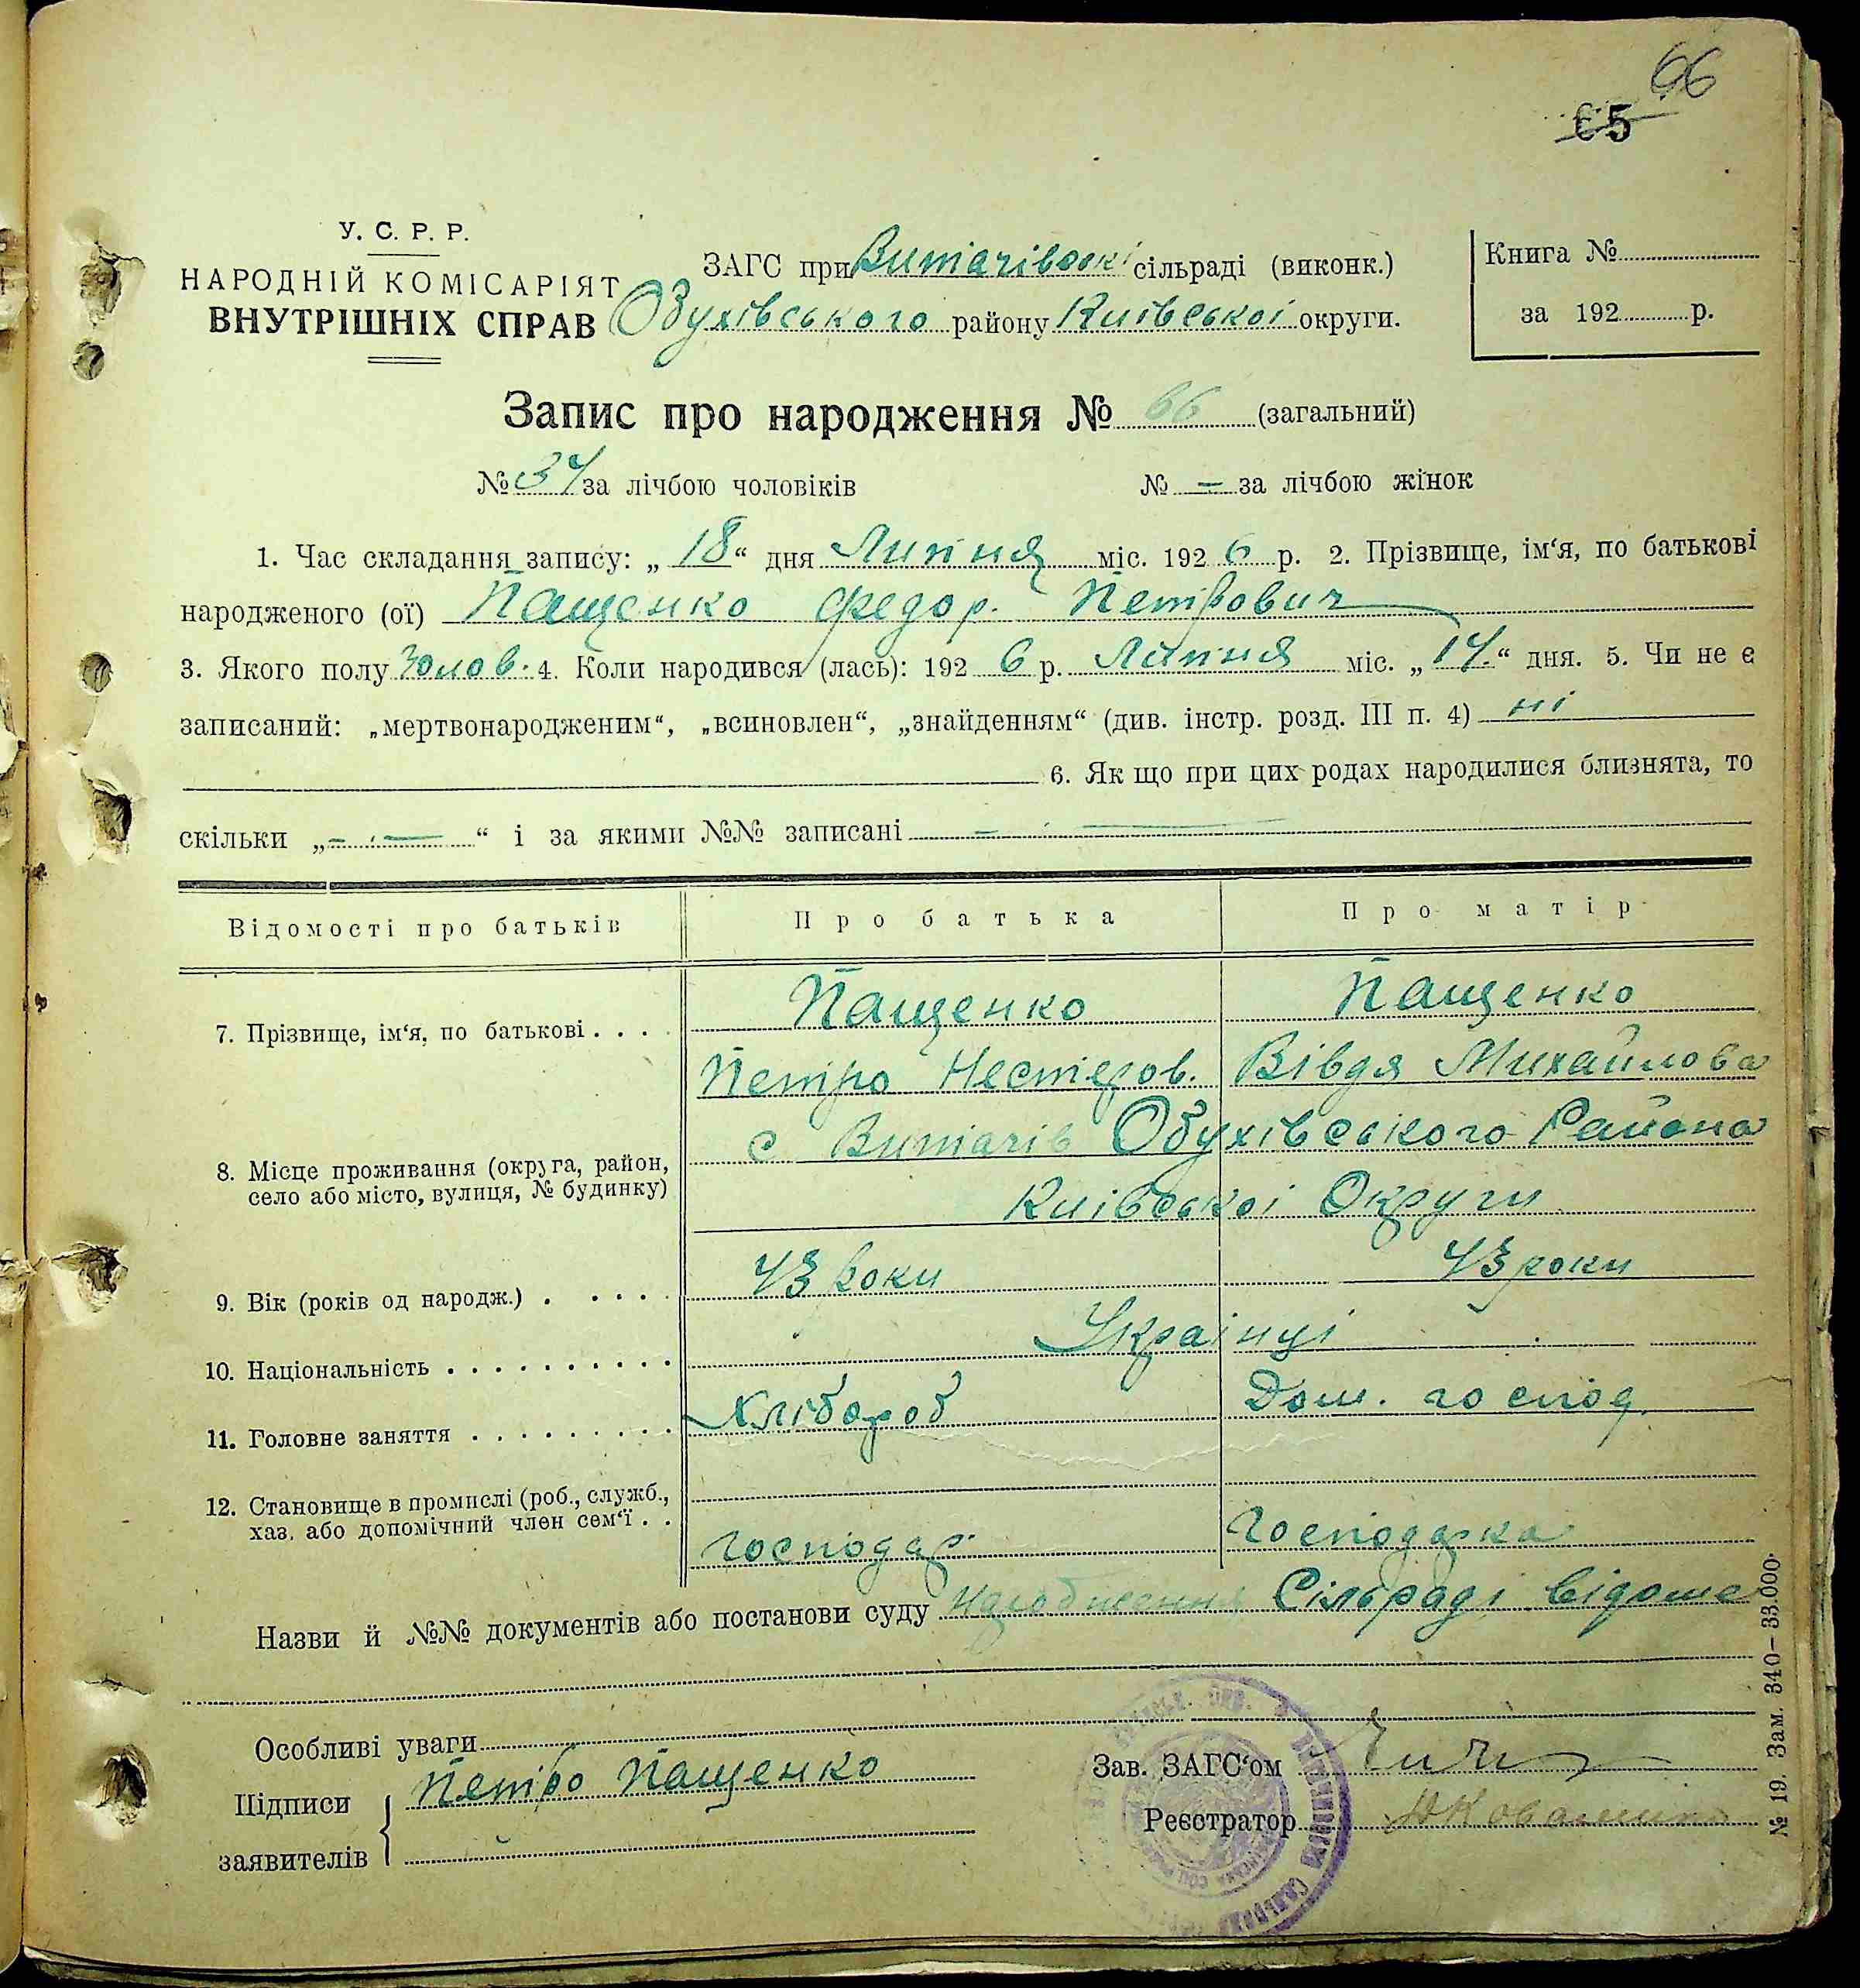 66
65
У. С. Р. Р.
НАРОДНІЙ КОМІСАРІЯТ
ВНУТРІШНІХ СПРАВ
ЗАГС при Витачівські сільраді (виконк.)
Обухівського району Київської округи.
Книга №
за 192 р.
Запис про народження № 66 (загальний)
№ 34 за лічбою чоловіків № — за лічбою жінок
1. Час складання запису: „ 18 “ дня Липня міс. 192 6 р. 2. Прізвище, ім‘я, по батькові
народженого (ої) Пащенко Федор Петрович
3. Якого полу Чолов. 4. Коли народився (лась): 192 6 р. Липня міс. „ 14 “ дня. 5. Чи не є
записаний: „мертвонародженим“, „всиновлен“, „знайденням“ (див. інстр. розд. III п. 4) ні
6. Як що при цих родах народилися близнята, то
скільки „ — “ і за якими №№ записані —
Відомості про батьків Про батька Про матір
Пащенко Пащенко
7. Прізвище, ім‘я, по батькові . . . .
Петро Нестеров. Вівдя Михайлова
с Витачів Обухівського Района
8. Місце проживання (округа, район,
село або місто, вулиця, № будинку)
Київської Округи
9. Вік (років од народж.) . . . . . 43 роки 43 роки
10. Національність . . . . . . . . . . Українці
11. Головне заняття . . . . . . . . . Хлібороб Дом. господ.
12. Становище в промислі (роб., служб.,
хаз. або допомічний член сем‘ї . .
господар Господарка
Назви й №№ документів або постанови суду народження Сільраді відоме
Особливі уваги
Підписи
заявителів
Петро Пащенко
Зав. ЗАГС‘ом
Реєстратор
№ 19. Зам. 340—33.000.